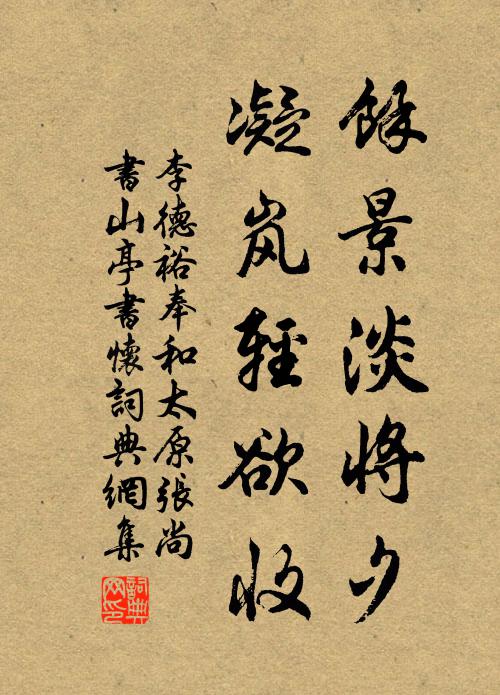 餘景淡將夕
凝岚輕欲收
李德裕奉和太原張尚
書山亭書懷詞典網集
詞典
网印